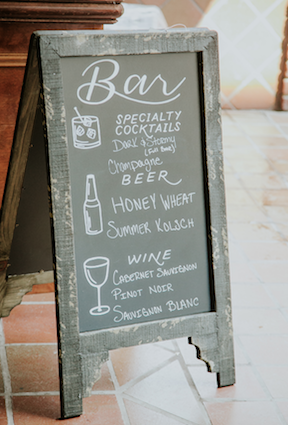 Bar
SPECIALTY
COCKTAILS
Dark & Stormy
(Full Bar)
Champagne
BEER
HONEY WHEAT
SUMMER KOLSCH
WINE
CABERNET SAUVIGNON
PINOT NOIR
SAUVIGNON BLANC